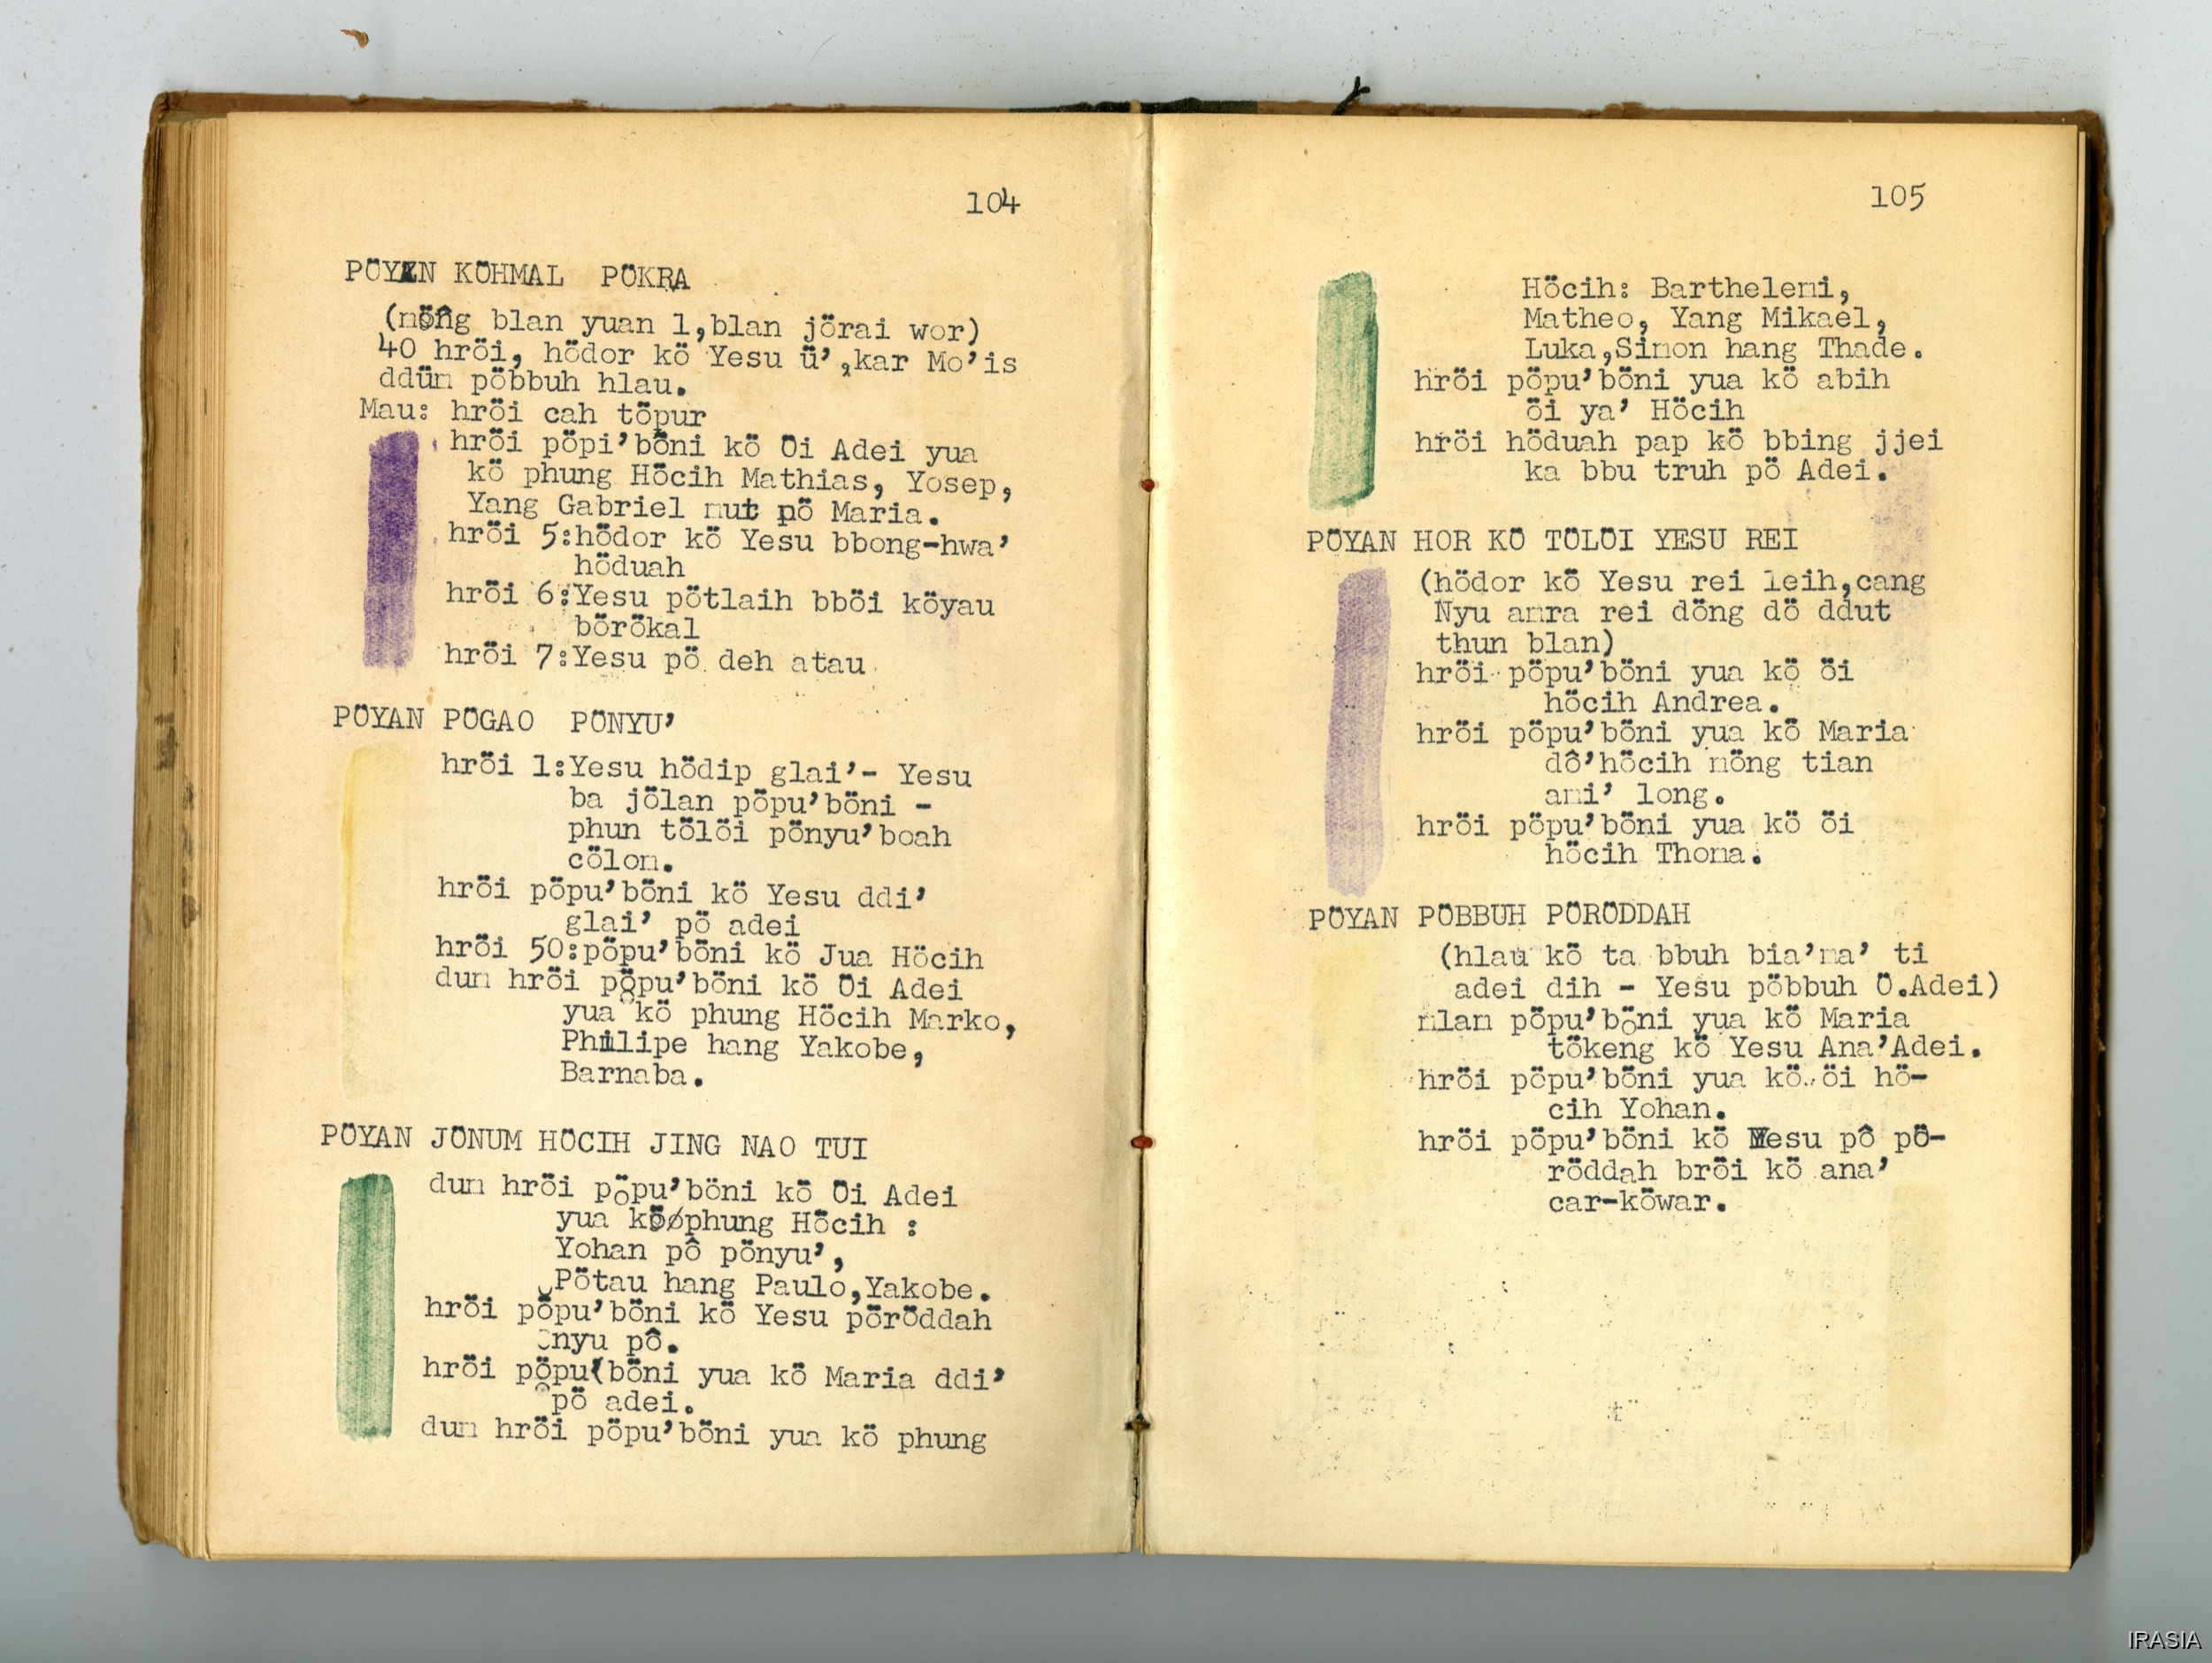 104
PÖYAN KÖHMAL PÖKRA
(nöng blan yuan 1,blan jörai wor)
40 hröi, hödor kö Yesu ü',kar Mo'is
ddün pöbbuh hlau.
Mau: hröi cah töpur
hröi pöpi'böni kö Öi Adei yua
kö phung Höcih Mathias, Yosep,
Yang Gabriel mut pö Maria.
hröi 5:hödor kö Yesu bbong-hwa'
höduah
hröi 6:Yesu pötlaih bböi köyau
börökal
hröi 7:Yesu pö deh atau
PÖYAN PÖGAO PÖNYU'
hröi 1:Yesu hödip glai'- Yesu
ba jölan pöpu'böni -
phun tölöi pönyu'boah
cölom.
hröi pöpu'böni kö Yesu ddi'
glai' pö adei
hröi 50:pöpu'böni kö Jua Höcih
dum hröi pöpu'böni kö Öi Adei
yua kö phung Höcih Marko,
Philipe hang Yakobe,
Barnaba.
PÖYAN JÖNUM HÖCIH JING NAO TUI
dum hröi pöpu'böni kö Öi Adei
yua kö phung Höcih :
Yohan pô pönyu',
Pötau hang Paulo,Yakobe.
hröi pöpu'böni kö Yesu pöröddah
önyu pô.
hröi pöpu'böni yua kö Maria ddi'
pö adei.
dum hröi pöpu'böni yua kö phung
105
Höcih: Barthelemi,
Matheo, Yang Mikael,
Luka,Simon hang Thade.
hröi pöpu'böni yua kö abih
öi ya' Höcih
hröi höduah pap kö bbing jjei
ka bbu truh pö Adei.
PÖYAN HOR KÖ TÖLÖI YESU REI
(hödor kö Yesu rei leih,cang
Nyu amra rei döng dö ddut
thun blan)
hröi pöpu'böni yua kö öi
höcih Andrea.
hröi pöpu'böni yua kö Maria
dô'höcih möng tian
ami' long.
hröi pöpu'böni yua kö öi
höcih Thoma.
PÖYAN PÖBBUH PÖRÖDDAH
(hlau kö ta bbuh bia'ma' ti
adei dih - Yesu pöbbuh Ö.Adei)
mlam pöpu'böni yua kö Maria
tökeng kö Yesu Ana'Adei.
hröi pöpu'böni yua kö öi hö-
cih Yohan.
hröi pöpu'böni kö Yesu pô pö-
röddah bröi kö ana'
car-köwar.
IRASIA